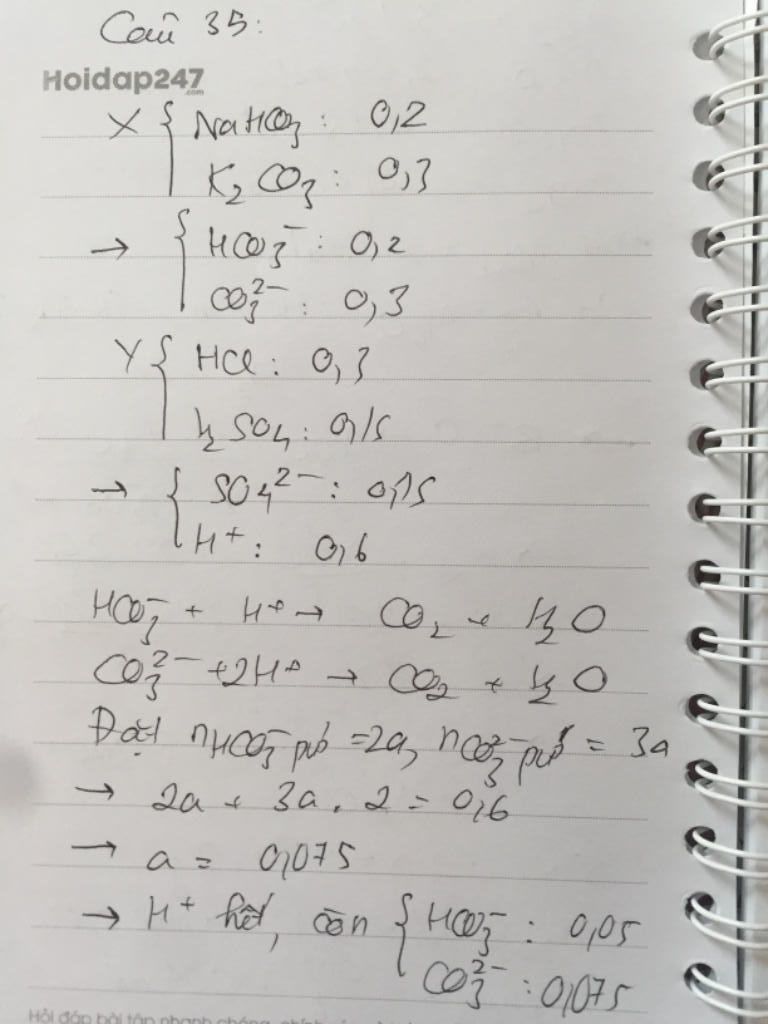 Câu 35:
Hoidap247
.com
X { NaHCO3 : 0,2
K2CO3 : 0,3
→ { HCO3^- : 0,2
CO3^2- : 0,3
Y { HCl : 0,3
H2SO4 : 0,15
→ { SO4^2- : 0,15
H+ : 0,6
HCO3^- + H+ → CO2 + H2O
CO3^2- + 2H+ → CO2 + H2O
Đặt nHCO3^- pứ = 2a, nCO3^2- pứ = 3a
→ 2a + 3a . 2 = 0,6
→ a = 0,075
→ H+ hết, còn { HCO3^- : 0,05
CO3^2- : 0,075
Hỏi đáp bài tập nhanh chóng, chính